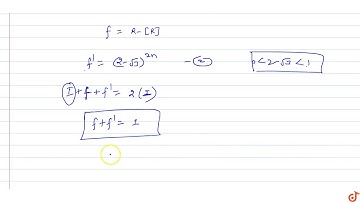 f = R-[R]
f' = (2-√3)^2n - ② 0<2-√3<1
I + f + f' = 2(I)
f+f' = 1